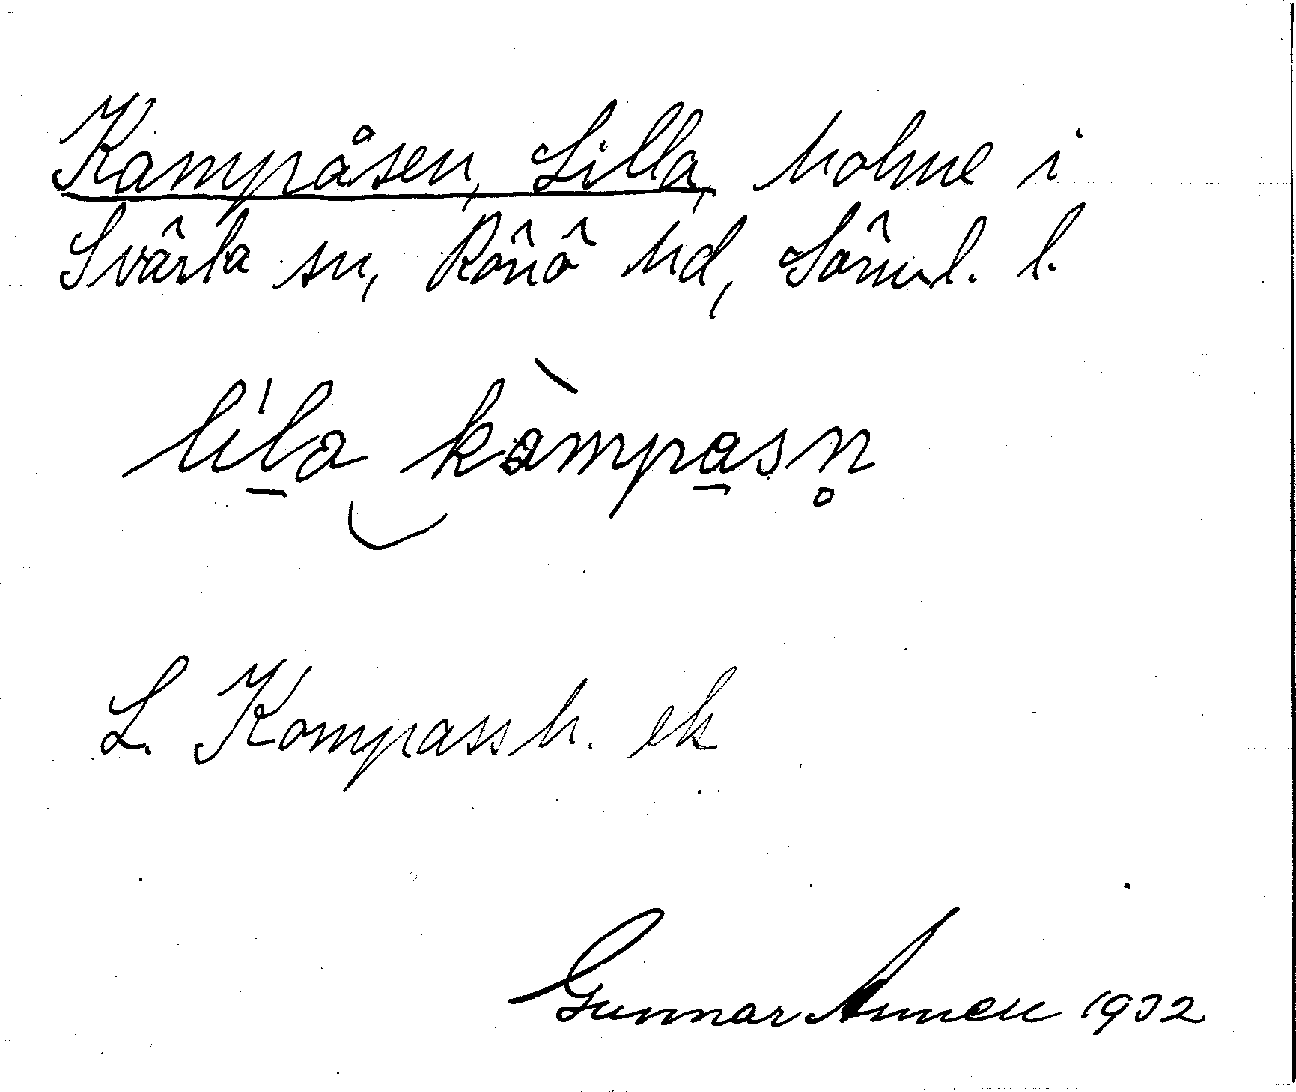 Kampåsen, Lilla, holme i
Svärta sn, Rönö hd, Söml. l.
li̱la kàmpa̱sn̥
L. Kompassh. ek
Gunnar Annell 1932